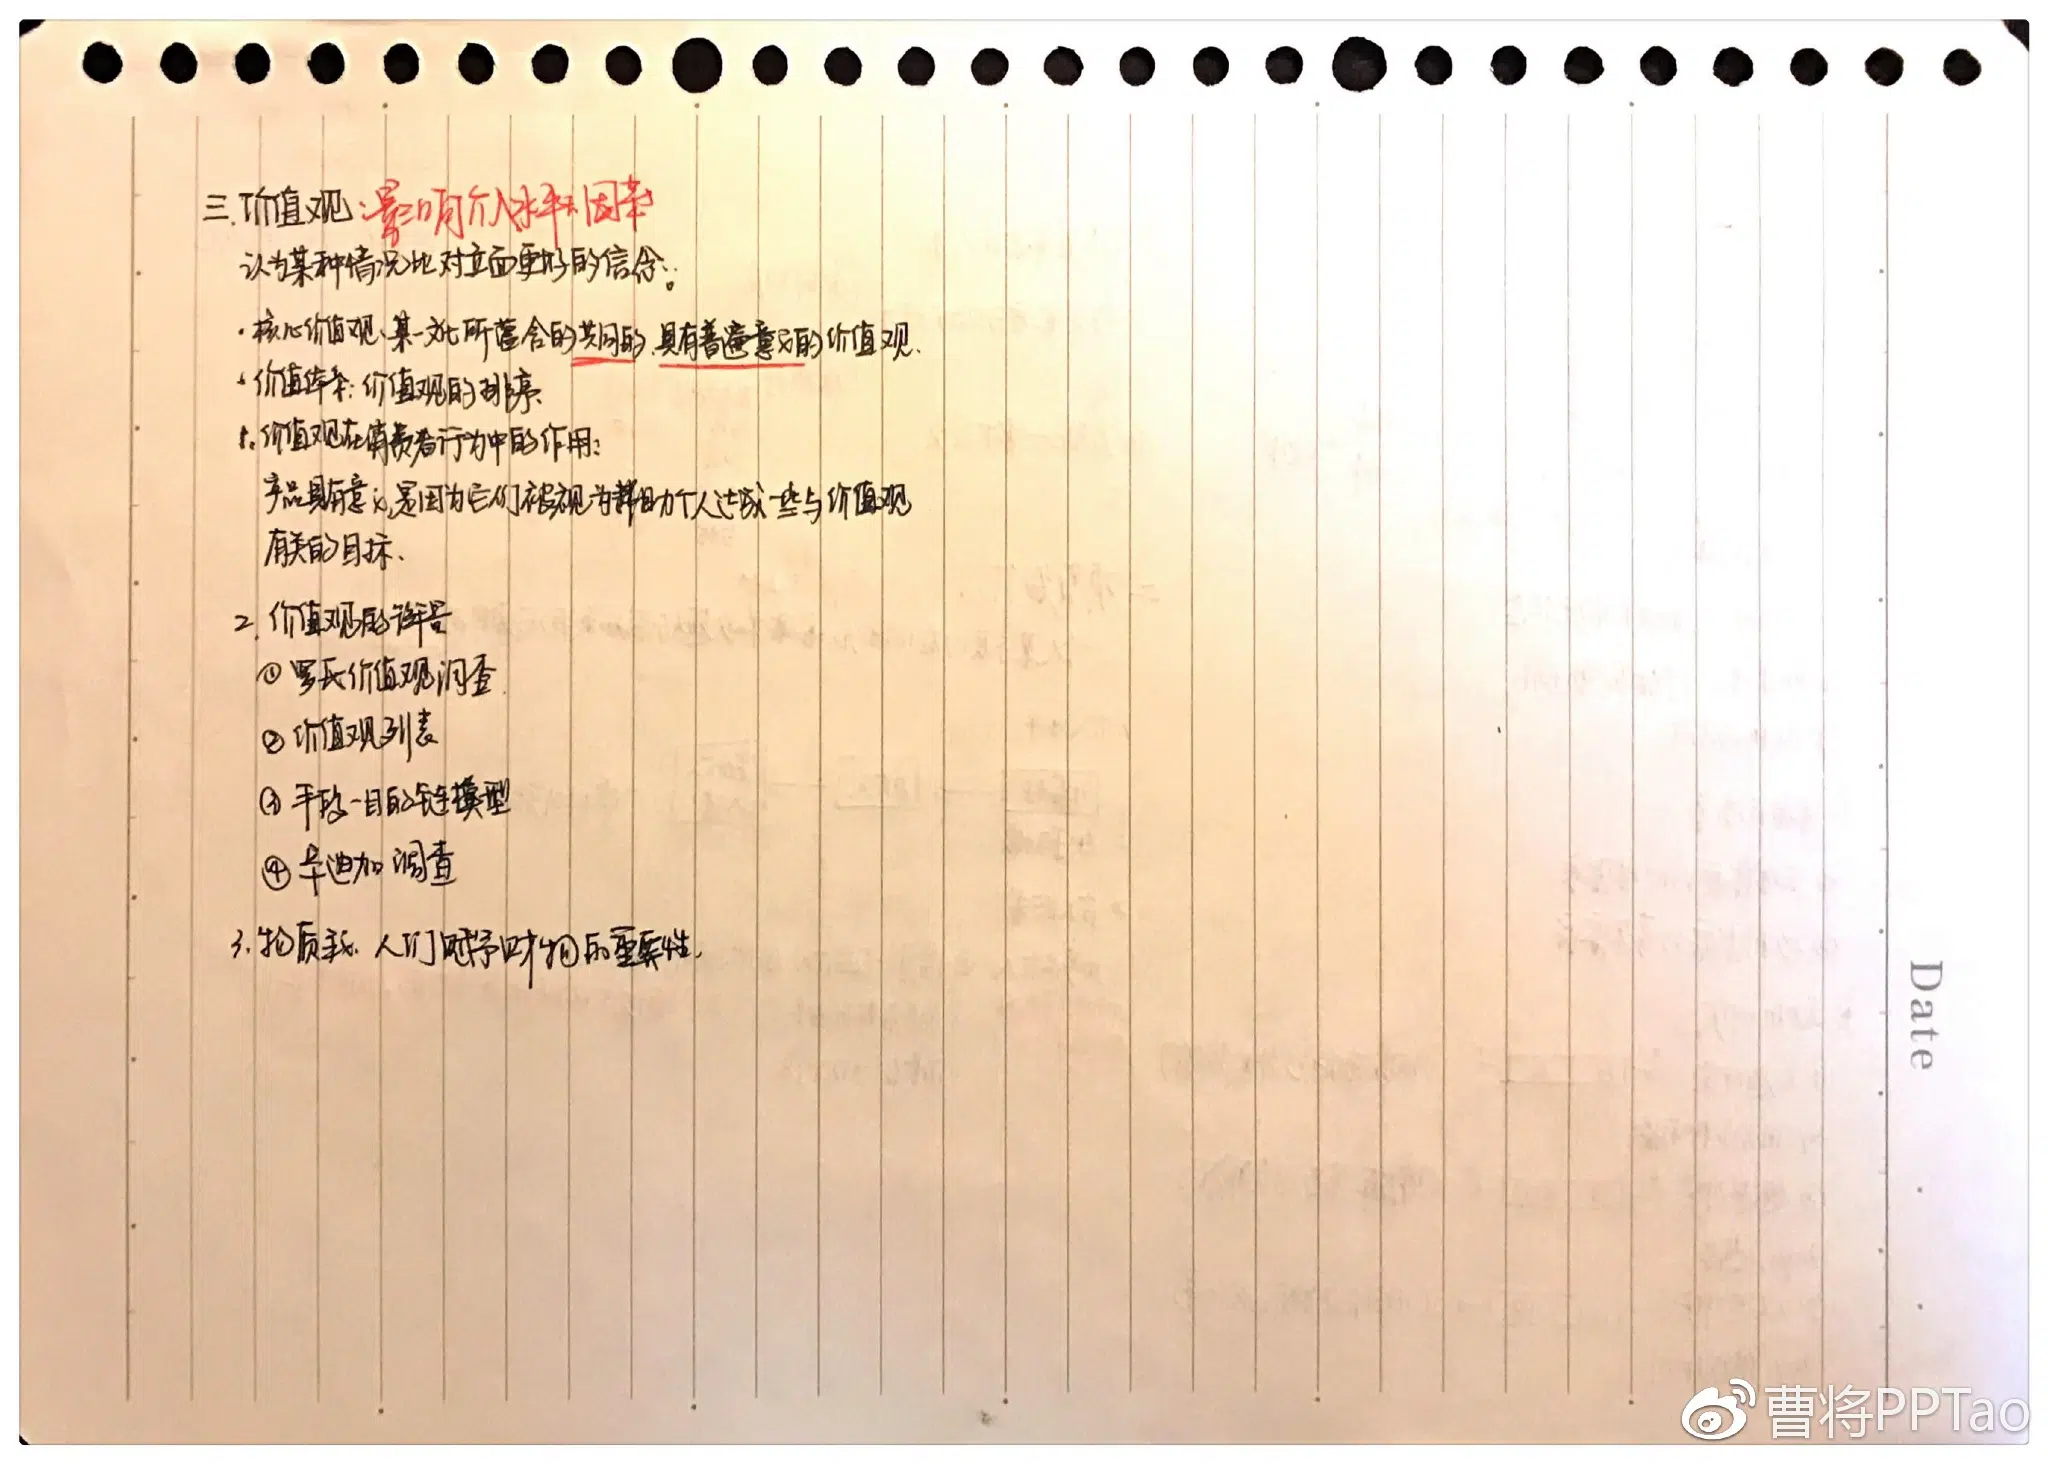 三.价值观:影响介入水平的因素
认为某种情况比对立面更好的信念。
·核心价值观:某一文化所蕴含的共同的、具有普遍意义的价值观.
·价值体系:价值观的排序.
1.价值观在消费者行为中的作用:
产品具有意义,是因为它们被视为帮助个人达成一些与价值观
有关的目标.
2.价值观的評量
①罗氏价值观调查.
②价值观列表
③手段-目的链模型
④辛迪加调查
3.物质主义:人们赋予财物的重要性.
Date
曹将PPTao